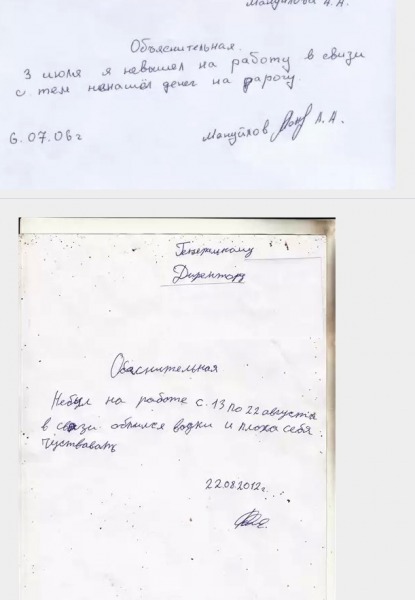 Мануйлова А. А.
Объяснительная.
3 июля я невышел на работу в свизи
с тем ненашёл денег на дорогу.
6.07.06г Мануйлов А.А.
Генеральному
Директору
Обяснительная
Небыл на работе с 13 по 22 августа
в связи обпился водки и плоха себя
чуствавать
22.08.2012г.